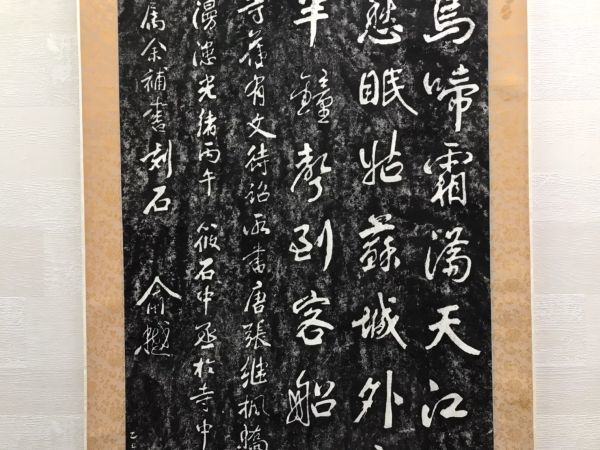 烏啼霜滿天江
愁眠姑蘇城外
半鐘聲到客船
寺舊有文待詔所書唐張繼楓橋
漫漶光緒丙午筱石中丞於寺中
屬余補書刻石
俞樾